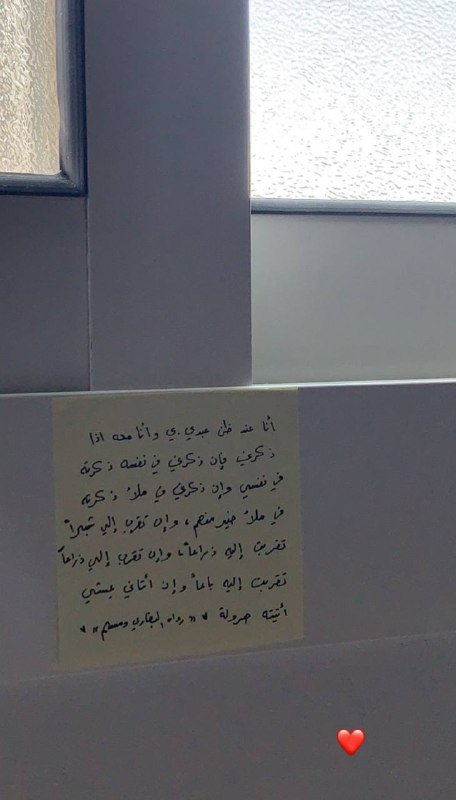 أنا عند ظن عبدي بي وأنا معه اذا
ذكرني فإن ذكرني في نفسه ذكرته
في نفسي وإن ذكرني في ملأ ذكرته
في ملأ خير منهم، وإن تقرب إلي شبراً
تقربت إليه ذراعاً، وإن تقرب إلي ذراعاً
تقربت إليه باعاً وإن أتاني يمشي
أتيته هرولة " رواه البخاري ومسلم "